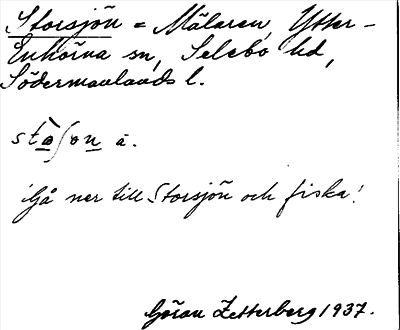 Storsjön = Mälaren, Ytter-
Enhörna sn, Selebo hd,
Södermanlands l.
stòʃøn a.
Gå ner till Storsjön och fiska!
Göran Zetterberg 1937.